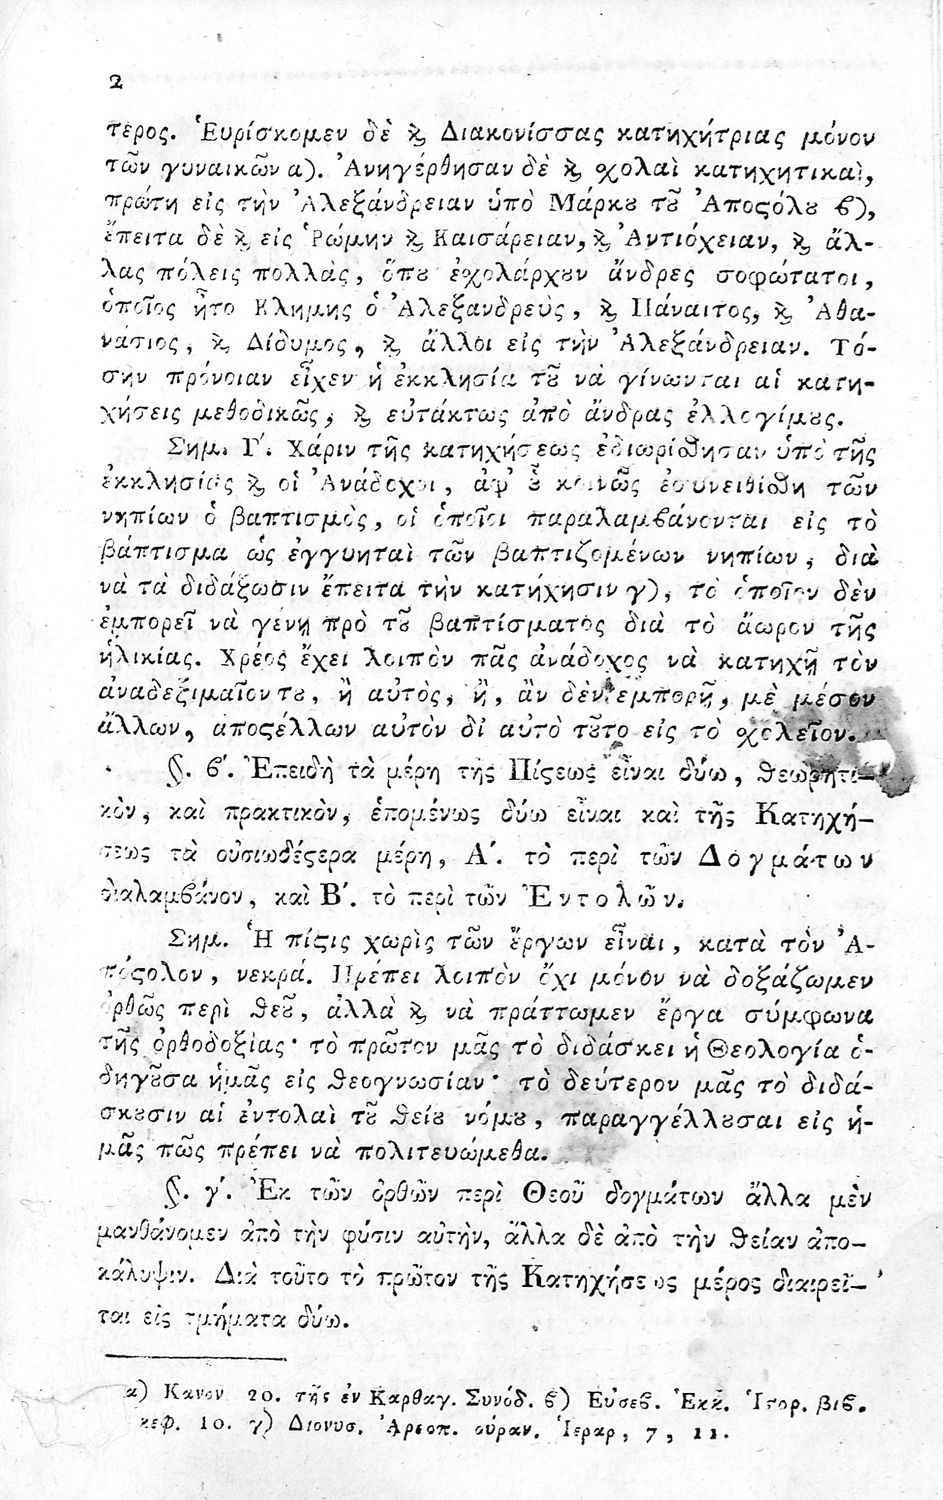 2
τερος. Ἑυρίσκομεν δὲ ϗ Διακονίσσας κατηχήτριας μόνον
τῶν γυναικῶν α). Ἀνηγέρθησαν δὲ ϗ σχολαὶ κατηχητικαὶ,
πρώτη εἰς τὴν Ἀλεξάνδρειαν ὑπὸ Μάρκȣ τȣ͂ Ἀποϛόλȣ ϐ),
ἔπειτα δὲ ϗ εἰς Ῥώμην ϗ Καισάρειαν, ϗ Ἀντιόχειαν, ϗ ἄλ-
λας πόλεις πολλὰς, ὅπȣ ἐσχολάρχȣν ἄνδρες σοφώτατοι,
ὁποῖος ἦτο Κλημης ὁ Ἀλεξανδρεὺς, ϗ Πάναιτος, ϗ Ἀθα-
νάσιος, ϗ Δίδυμος, ϗ ἄλλοι εἰς τὴν Ἀλεξάνδρειαν. Τό-
σην πρόνοιαν εἶχεν ἡ ἐκκλησία τȣ͂ νὰ γίνωνται αἱ κατη-
χήσεις μεθοδικῶς, ϗ εὐτάκτως ἀπὸ ἄνδρας ἐλλογίμȣς.
Σημ. Γ΄. Χάριν τῆς κατηχήσεως ἐδιωρίσθησαν ὑπὸ τῆς
ἐκκλησίας ϗ οἱ Ἀνάδοχοι, ἀφ' ȣ͗͂ κοινῶς ἐσυνειθίσθη τῶν
νηπίων ὁ βαπτισμὸς, οἱ ὁποῖοι παραλαμϐάνονται εἰς τὸ
βάπτισμα ὡς ἐγγυηταὶ τῶν βαπτιζομένων νηπίων, διὰ
νὰ τὰ διδάξωσιν ἔπειτα τὴν κατήχησιν γ), τὸ ὁποῖον δὲν
ἐμπορεῖ νὰ γένῃ πρὸ τȣ͂ βαπτίσματος διὰ τὸ ἄωρον τῆς
ἡλικίας. Χρέος ἔχει λοιπὸν πᾶς ἀνάδοχος νὰ κατηχῇ τὸν
ἀναδεξιμαῖον τȣ, ἢ αὐτὸς, ἢ, ἂν δὲν ἐμπορῇ, μὲ μέσον
ἄλλων, ἀποϛέλλων αὐτὸν δἰ αὐτὸ τȣ͂το εἰς τὸ σχολεῖον.
§. ϐ΄. Ἐπειδὴ τὰ μέρη τῆς Πίϛεως εἶναι δύω, θεωρητι-
κὸν, καὶ πρακτικὸν, ἑπομένως δύω εἶναι καὶ τῆς Κατηχή-
σεως τὰ οὐσιωδέϛερα μέρη, Α΄. τὸ περὶ τῶν Δογμάτων
διαλαμϐάνον, καὶ Β΄. τὸ περὶ τῶν Ἐντολῶν.
Σημ. Ἡ πίϛις χωρὶς τῶν ἔργων εἶναι, κατὰ τὸν Ἀ-
πόϛολον, νεκρά. Πρέπει λοιπὸν ὄχι μόνον νὰ δοξάζωμεν
ὀρθῶς περὶ θεȣ͂, ἀλλὰ ϗ νὰ πράττωμεν ἔργα σύμφωνα
τῆς ὀρθοδοξίας· τὸ πρῶτον μᾶς τὸ διδάσκει ἡ Θεολογία ὁ-
δηγȣ͂σα ἡμᾶς εἰς θεογνωσίαν· τὸ δεύτερον μᾶς τὸ διδά-
σκȣσιν αἱ ἐντολαὶ τȣ͂ θείȣ νόμȣ, παραγγέλλȣσαι εἰς ἡ-
μᾶς πῶς πρέπει νὰ πολιτευώμεθα.
§. γ΄. Ἐκ τῶν ὀρθῶν περὶ Θεοῦ δογμάτων ἄλλα μὲν
μανθάνομεν ἀπὸ τὴν φύσιν αὐτὴν, ἄλλα δὲ ἀπὸ τὴν θείαν ἀπο-
κάλυψιν. Διὰ τοῦτο τὸ πρῶτον τῆς Κατηχήσεως μέρος διαιρεῖ-
ται εἰς τμήματα δύω.
α) Κανον 20. τῆς ἐν Καρθαγ. Συνόδ. ϐ) Εὐσεϐ. Ἐκκ. Ἱϛορ. βιϐ.
κεφ. 10. γ) Διονυσ. Ἀρεοπ. οὐραν. Ἱεραρ, 7, 11.